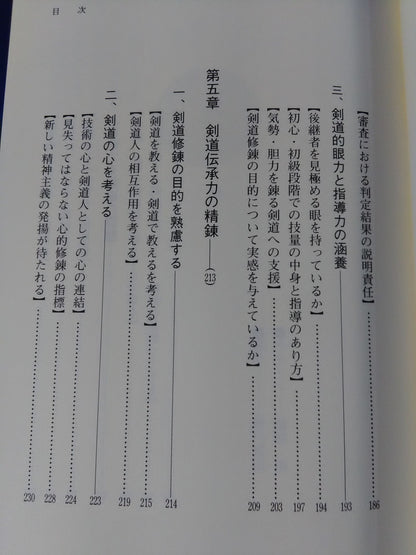 目　次
【審査における判定結果の説明責任】……186
三、剣道的眼力と指導力の涵養――193
【後継者を見極める眼を持っているか】……194
【初心・初級段階での技量の中身と指導のあり方】……197
【気勢・胆力を錬る剣道への支援】……203
【剣道修錬の目的について実感を与えているか】……209
第五章　剣道伝承力の精錬――(213)
一、剣道修錬の目的を熟慮する――214
【剣道を教える・剣道で教えるを考える】……215
【剣道人の相互作用を考える】……219
二、剣道の心を考える――223
【技術の心と剣道人としての心の連結】……224
【見失ってはならない心的修錬の指標】……228
【新しい精神主義の発揚が待たれる】……230